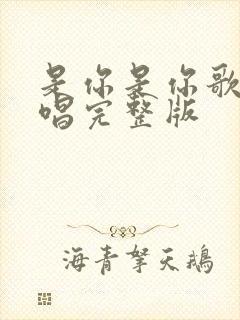 是你是你歌
唱完整版
海青拏天鹅